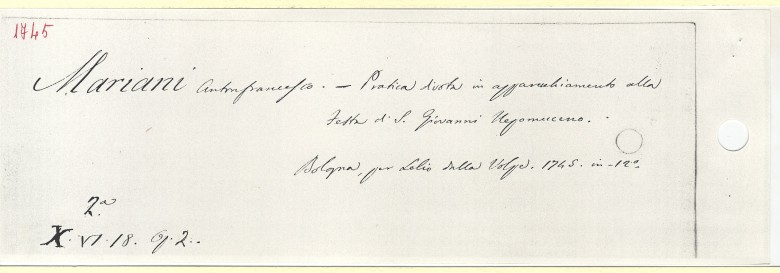 1745
Mariani Antonfrancesco. – Pratica divota in apparecchiamento alla
festa di S. Giovanni Nepomuceno.
Bologna, per Lelio dalla Volpe. 1745. in-12º.
2.ª
X. VI. 18. Op. 2..